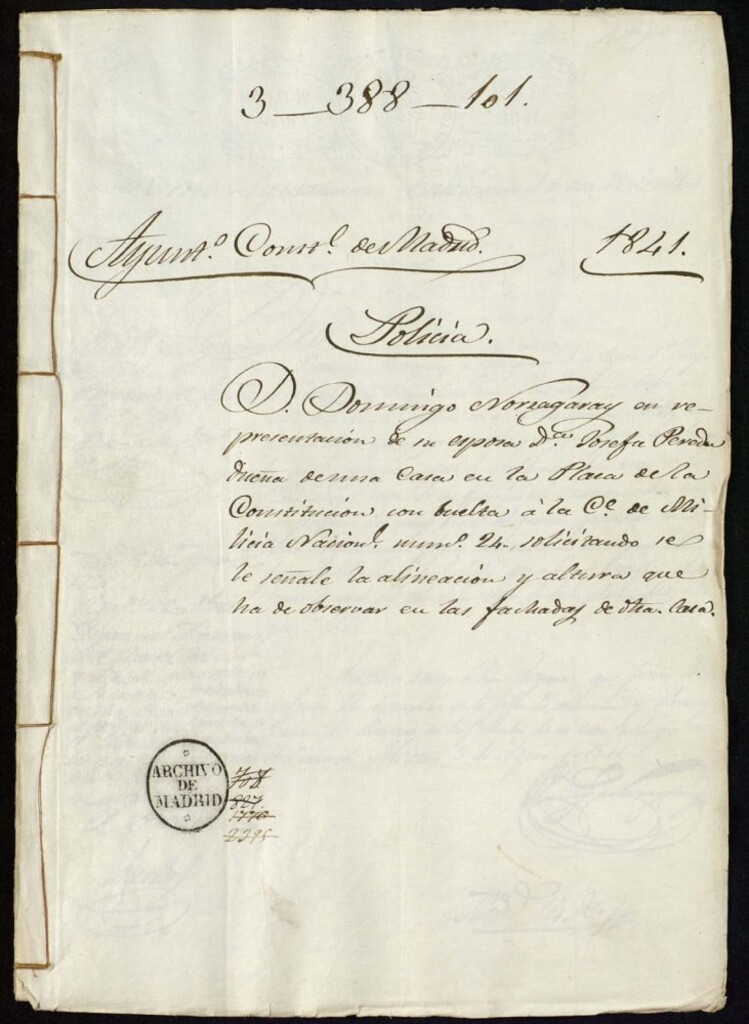 3_388_101.
Ayunt.º Const.l de Madrid. 1841.
Policia.
D. Domingo Norzagaray en re-
presentación de su esposa D.ª Josefa Pereda
dueña de una Casa en la Plaza de la
Constitución con buelta á la C.e de Mi-
licia Nacion.l num.º 24. solicitando se
le señale la alineación y altura que
ha de observar en las fachadas de dha. Casa.
ARCHIVO
DE
MADRID
887.
1770
2395